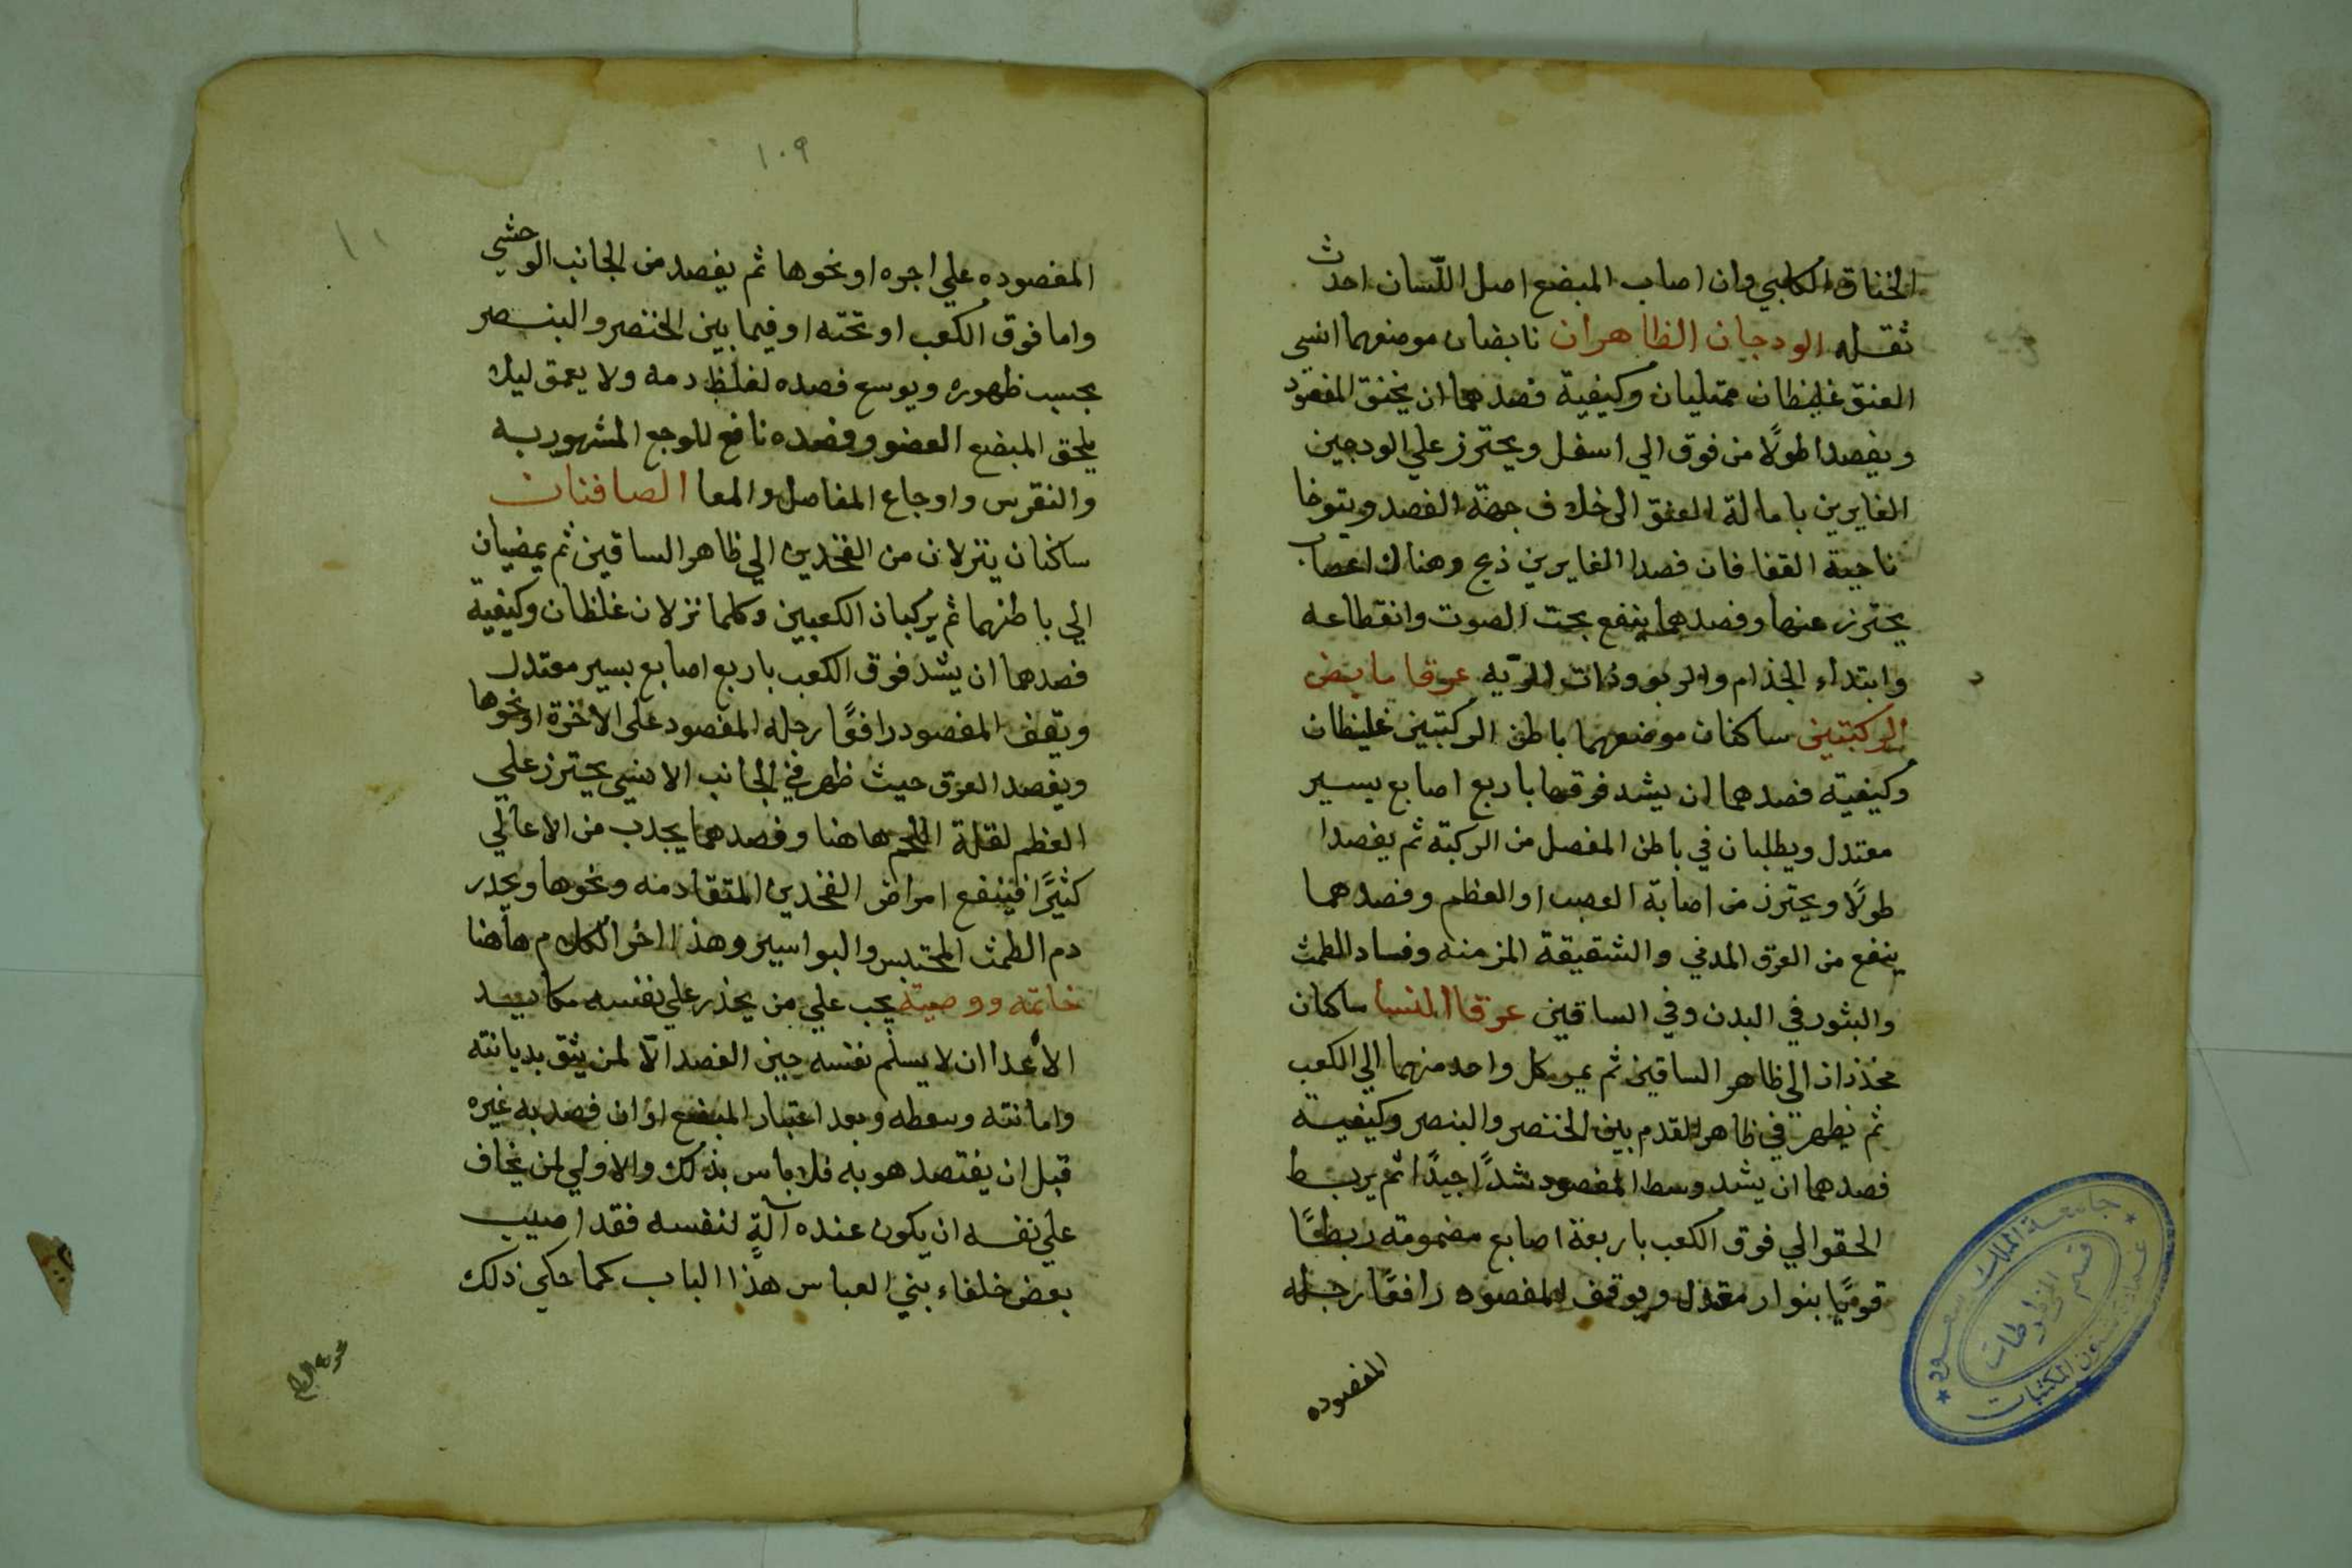 الخناق الكلبي وان اصاب المبضع اصل اللسان احدث
ثقله الودجان الظاهران نابضان موضعهما انسي
العنق غليظان ممتليان وكيفية فصدهما ان يخنق المفصود
ويفصدا طولًا من فوق الي اسفل ويحترز علي الودجين
الغايرين بامالة العنق الي خلاف جهة الفصد ويتوخا
ناحية القفا فان فصدا الغايرين ذبح وهناك اعصاب
يحترز عنها وفصدهما ينفع بحت الصوت وانقطاعه
وابتداء الجذام والربو وذات الريه عرقا مابض
الركبتين ساكنان موضعهما باطن الركبتين غليظان
وكيفيته فصدهما ان يشد فوقهما باربع اصابع بسير
معتدل ويطلبان في باطن المفصل من الركبة ثم يفصدا
طولًا ويحترز من اصابة العصب او العظم وفصدهما
ينفع من العرق المدني والشقيقة المزمنه وفساد الطمث
والبثور في البدن وفي الساقين عرقا النسا ساكنان
ممدان الي ظاهر الساقين ثم يمر كل واحد منهما الي الكعب
ثم يظهر في ظاهر القدم بين الخنصر والبنصر وكيفية
فصدهما ان يشد وسط المفصود شدًا جيدًا ثم يربط
الحقو الي فوق الكعب باربعة اصابع مضمومة ربطًا
قويًا بنوار مقزل ويوقف المفصود رافعًا رجله
المفصوده
جامعة الملك سعود
عمادة شؤون المكتبات
قسم المخطوطات
١٠٩
المفصوده علي اجره او نحوها ثم يفصد من الجانب الوحشي
واما فوق الكعب او تحته او فيما بين الخنصر والبنصر
بحسب ظهوره ويوسع فصده لغلظ دمه ولا يعمق ليلا
يلحق المبضع العضو وفصده نافع للوجع المشهور به
والنقرس واوجاع المفاصل والمعا الصافنان
ساكنان ينزلان من الفخدين الي ظاهر الساقين ثم يمضيان
الي باطنهما ثم يركبان الكعبين وكلما نزلان غلظان وكيفية
فصدهما ان يشد فوق الكعب باربع اصابع بسير معتدل
ويقف المفصود رافعًا رجله المفصود على الاخرة او نحوها
ويفصد العرق حيث ظهر في الجانب الانسي يحترز علي
العظم لقلة اللحم هاهنا وفصدهما يجدب من الاعالي
كثيرًا فينفع امراض الفخدين المتقادمه ونحوها ويحدر
دم الطمث المحتبس والبواسير وهذا اخر الكلام هاهنا
خاتمه ووصية يجب علي من يحذر علي نفسه مكايد
الاعدا ان لا يسلم نفسه حين الفصد الّا لمن يثق بديانته
وامانته وسطه وبعد اعتبار المبضع اوان فصد به غيره
قبل ان يفتصد هو به فلا باس بذلك والاولي لمن يخاف
علي نفسه ان يكون عنده آلةٍ لنفسه فقد اصيب
بعض خلفاء بني العباس هذا الباب كما حكي ذلك